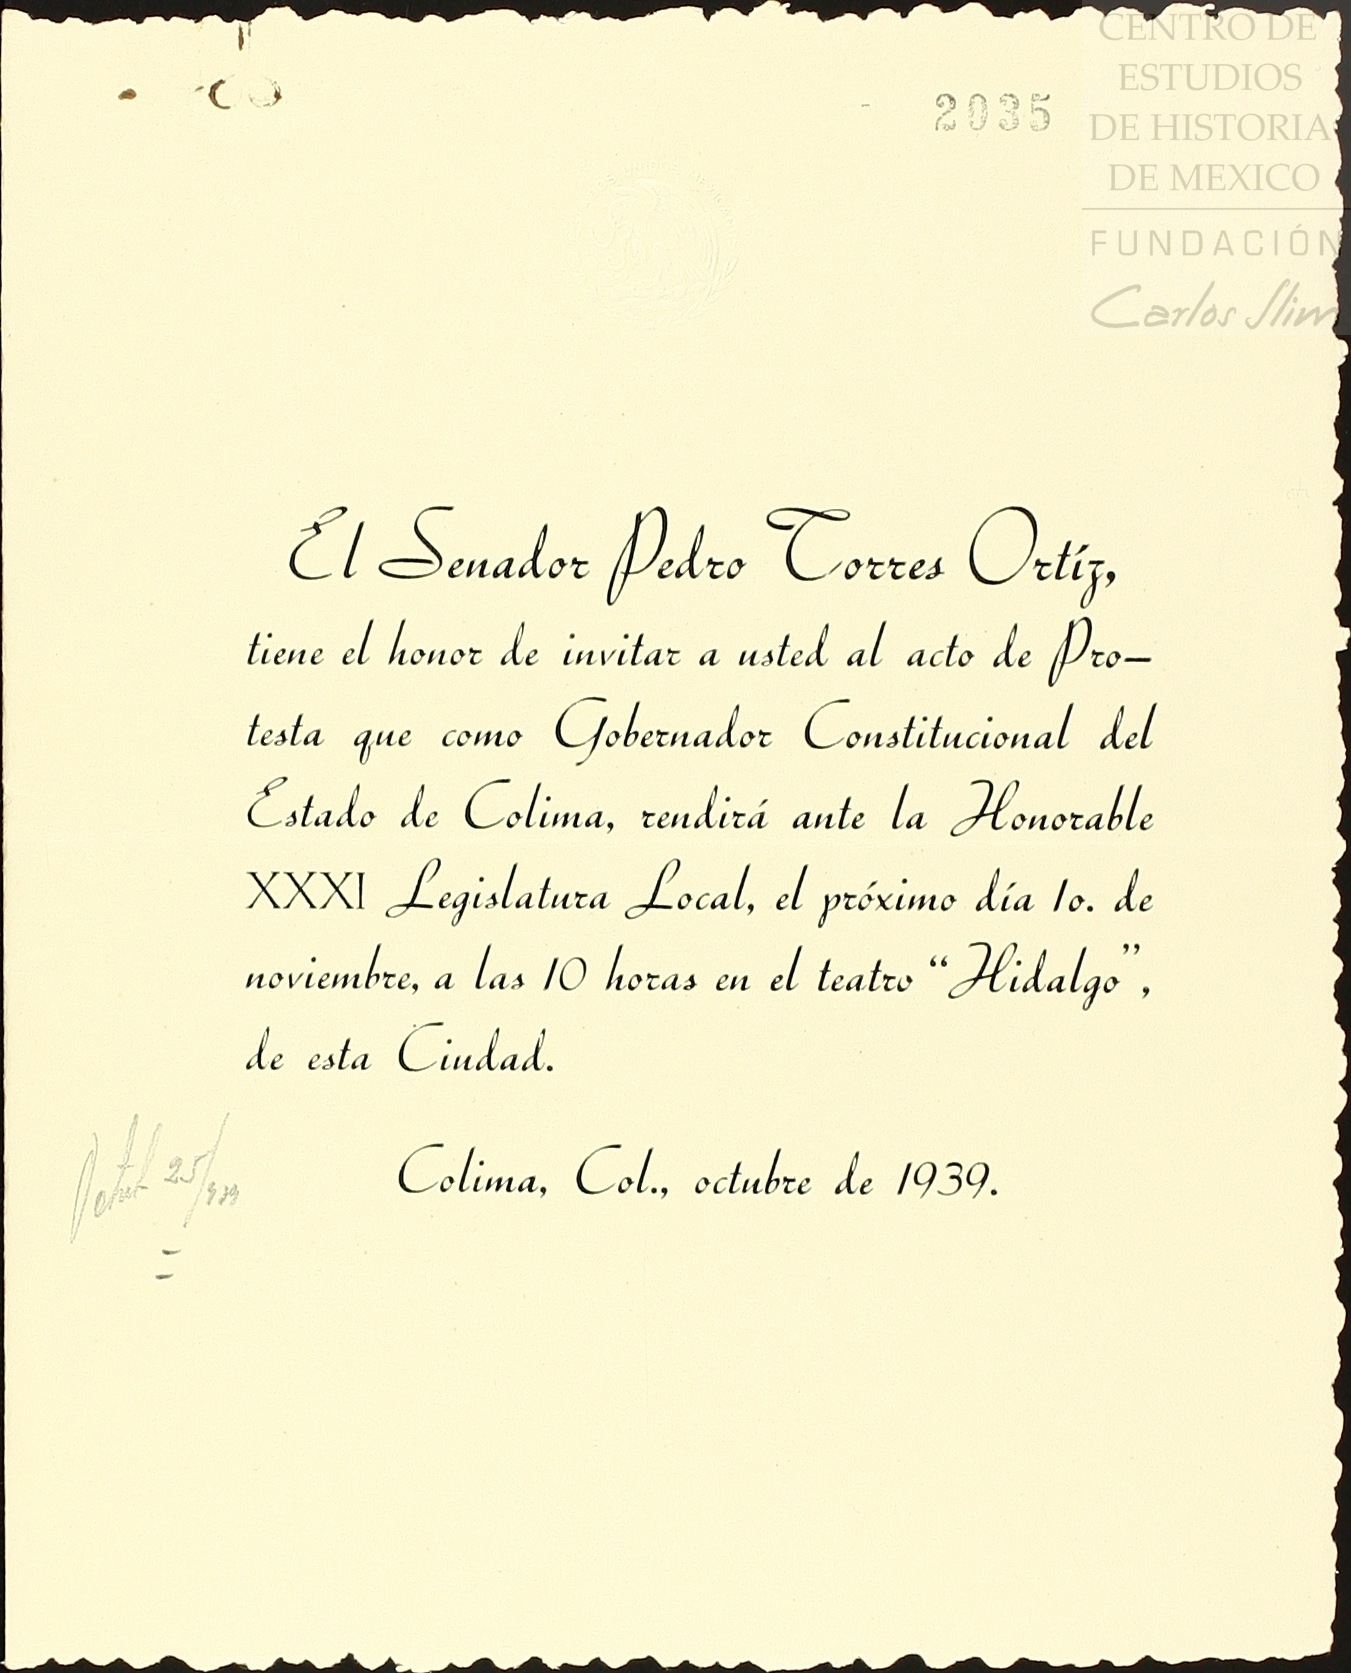 CENTRO DE
ESTUDIOS
DE HISTORIA
DE MEXICO
FUNDACIÓN
Carlos Slim
2035
El Senador Pedro Torres Ortíz,
tiene el honor de invitar a usted al acto de Pro-
testa que como Gobernador Constitucional del
Estado de Colima, rendirá ante la Honorable
XXXI Legislatura Local, el próximo día 1o. de
noviembre, a las 10 horas en el teatro "Hidalgo",
de esta Ciudad.
25/939
Colima, Col., octubre de 1939.